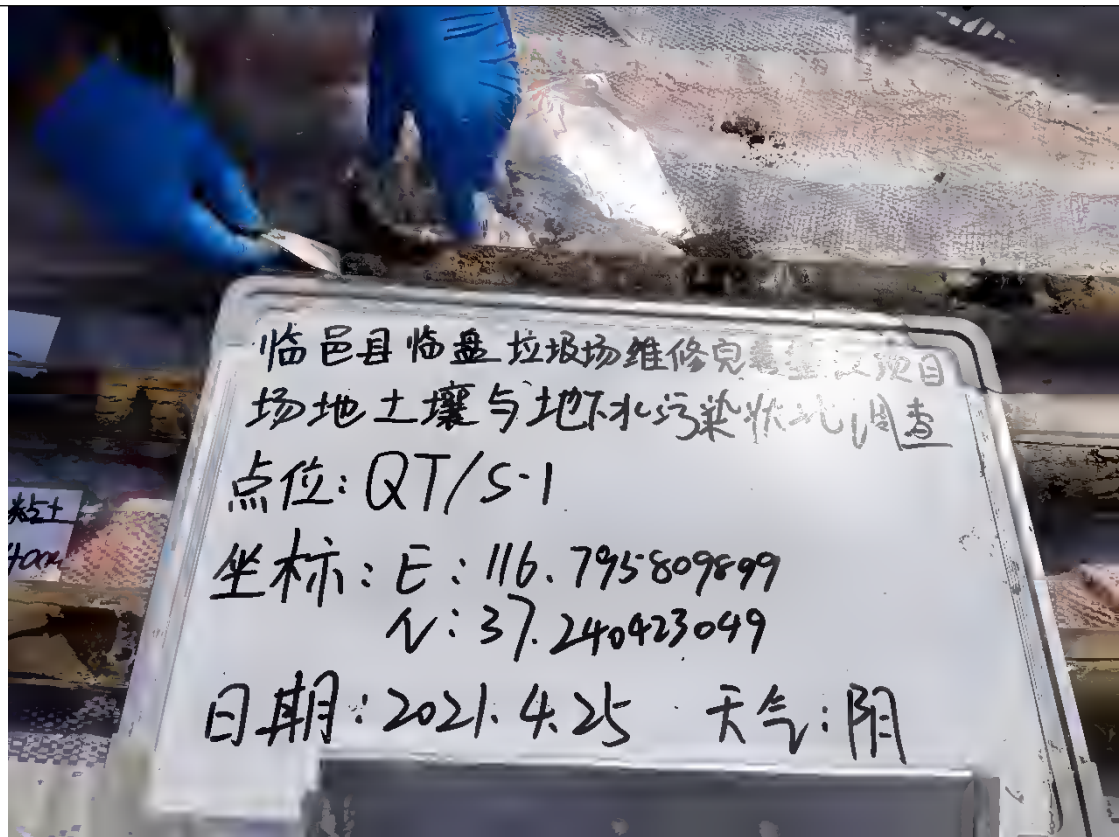 临邑县临盘垃圾场维修完善建设项目
场地土壤与地下水污染状况调查
点位：QT/S-1
坐标：E：116.795809899
N：37.240423049
日期：2021.4.25 天气：阴
粘土